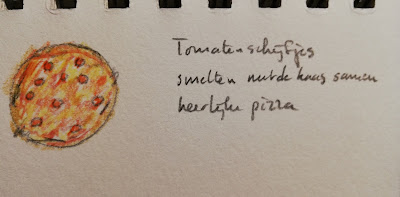 Tomatenschijfjes
smelten met de kaas samen
heerlijke pizza